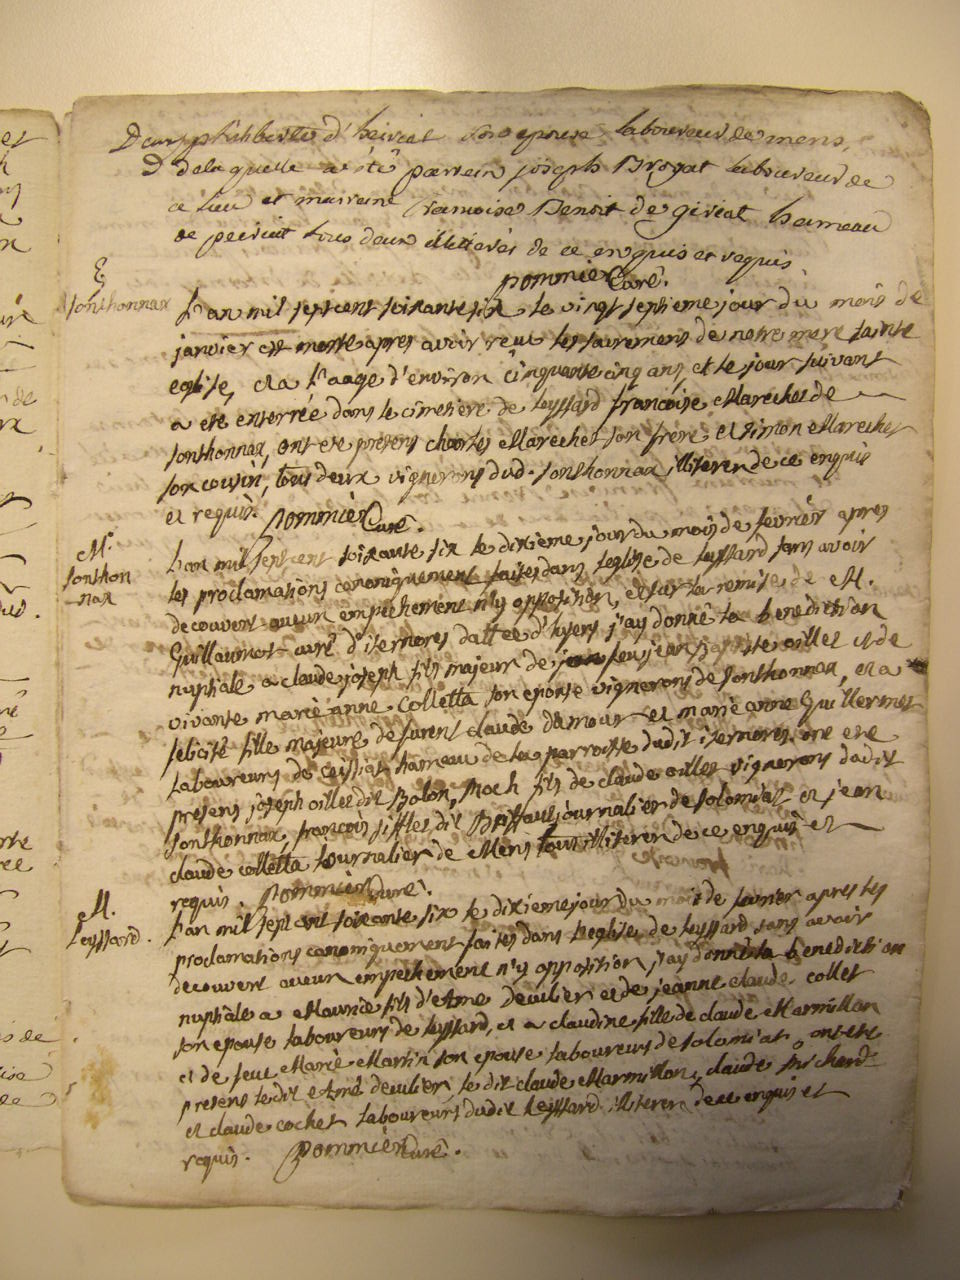 philiberte d'heiriat son epouse laboureur de mens,
de laquelle a été parrein joseph Brogat laboureur de
ce lieu et marraine francoise Benoit de giriat hameau
de peiriat tous deux illitérés de ce enquis et requis
pommier Curé.
E
sonthonnax
L'an mil septcent soixante six le vingt septieme jour du mois de
janvier est morte apres avoir reçu les sacremens de notre mere sainte
eglise, et a l'aage d'environ cinquante cinq ans, et le jour suivant
a eté enterrée dans le cimetiere de leyssard françoise Marechet de
sonthonnax, ont eté présens charles Marechet son frère et simon Marechet
son cousin, tous deux vignerons dud. sonthonnax illiterer de ce enquis
et requis. pommier Curé.
M.
sonthon
nax
L'an mil septcent soixante six le dixieme jour du mois de fevrier apres
les proclamations canoniquement faites dans l'eglise de leyssard sans avoir
decouvert aucun empechement n'y opposition, et sur la remise de M.
Guillaumot curé d'isernores dattée d'hyers j'ay donné la benediction
nuptiale a claude joseph fils majeur de feu jean baptiste oillet et de
vivante marie anne Colletta son epouse vignerons de sonthonnax, et a
felicité fille majeure de furent claude damour et marie anne Guillermet
laboureurs de ceissiat hameau de la parroisse dudit isernores. ont eté
presens joseph oillet dit Bolon, Roch fils de claude oillet vignerons dudit
sonthonnax, françois sifflet dit Briffaut journalier de solomiat et jean
claude colletta tournalier de Mens tous illiterer de ce enquis et
requis. pommier Curé.
M.
Leyssard.
L'an mil sept cent soixante six le dixieme jour du mois de fevrier apres les
proclamations canoniquement faites dans l'eglise de leyssard sans avoir
decouvert aucun empechement n'y opposition j'ay donné la benediction
nuptiale a Maurice fils d'Amé deculier et de jeanne claude collet
son epouse laboureurs de leyssard, et a claudine fille de claude Marmillon
et de feue Marie Martin son epouse laboureurs de solomiat, ont eté
presens ledit Amé deculier, le dit claude Marmillon, claude
et claude cochet laboureurs dudit leyssard illiterer de ce enquis et
requis. pommier Curé.